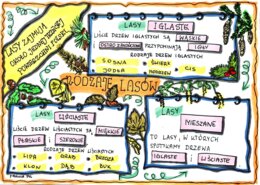 LASY ZAJMUJĄ
OKOŁO JEDNEJ TRZECIEJ
POWIERZCHNI POLSKI
LASY IGLASTE
LIŚCIE DRZEW IGLASTYCH SĄ WĄSKIE I
OSTRO ZAKOŃCZONE PRZYPOMINAJĄ IGŁY
RODZAJE DRZEW IGLASTYCH
SOSNA ŚWIERK
JODŁA MODRZEW CIS
RODZAJE LASÓW
LASY LIŚCIASTE
LIŚCIE DRZEW LIŚCIASTYCH SĄ MIĘKKIE
PŁASKIE I SZEROKIE
RODZAJE DRZEW LIŚCIASTYCH
LIPA GRAB BRZOZA
KLON DĄB BUK
LASY
MIESZANE
TO LASY, W KTÓRYCH
SPOTKAMY DRZEWA
IGLASTE I LIŚCIASTE